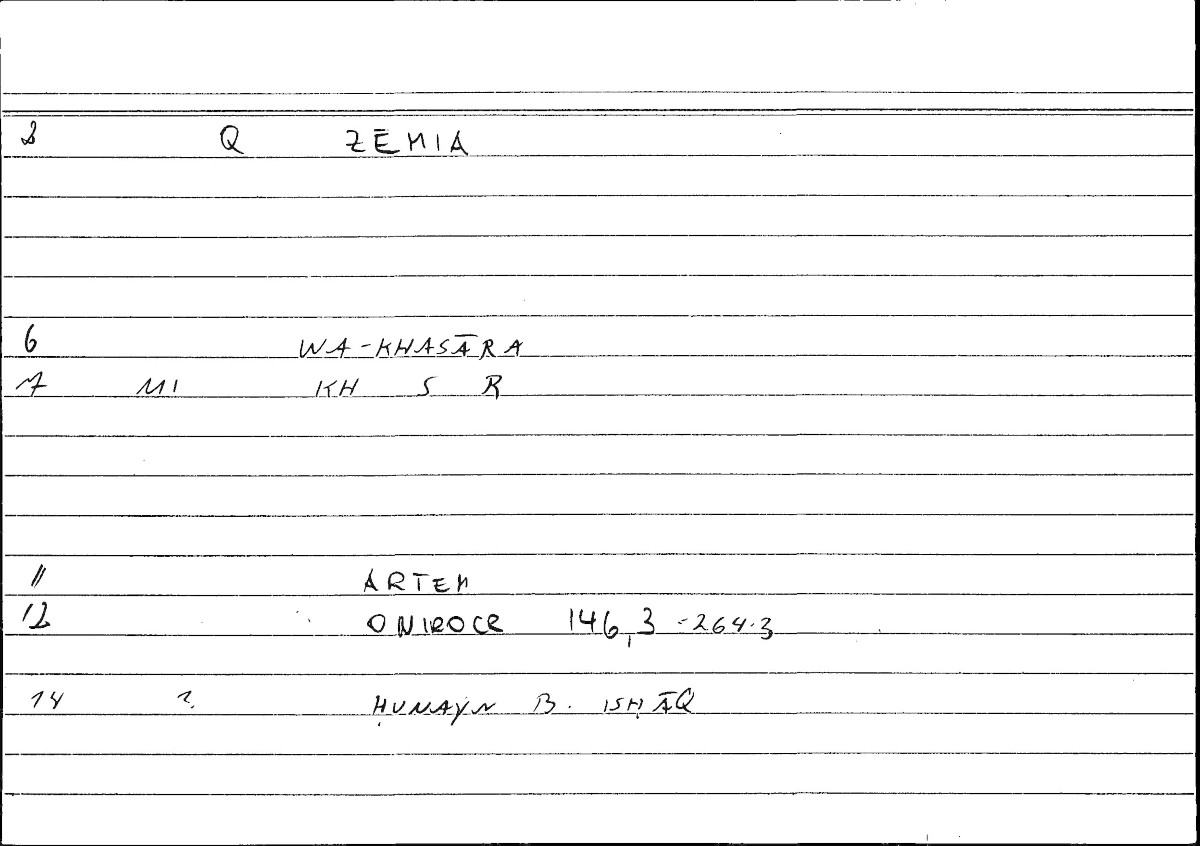 2 Q ZĒMIA
6 WA-KHASĀRA
7 MI KH S R
11 ARTEM
12 ONIROCR 146,3 -264.3
14 ? ḤUNAYN B. ISḤĀQ